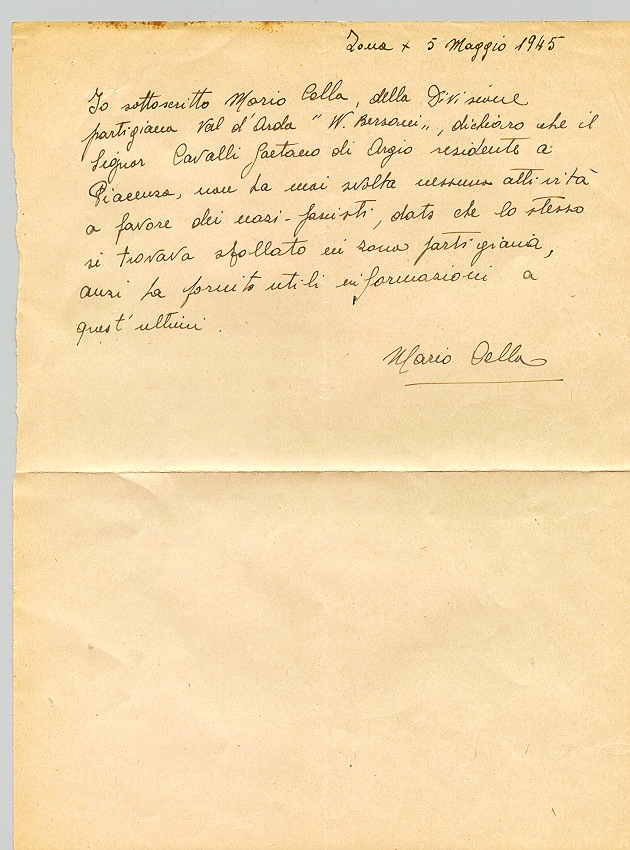 Zona x 5 Maggio 1945
Io sottoscritto Mario Cella, della Divisione
partigiana Val d'Arda "W. Bersani", dichiaro che il
Signor Cavalli Gaetano di Argio residente a
Piacenza, non ha mai svolta nessuna attività
a favore dei nazi-fascisti, dato che lo stesso
si trovava sfollato in zona partigiana,
anzi ha fornito utili informazioni a
quest'ultimi.
Mario Cella